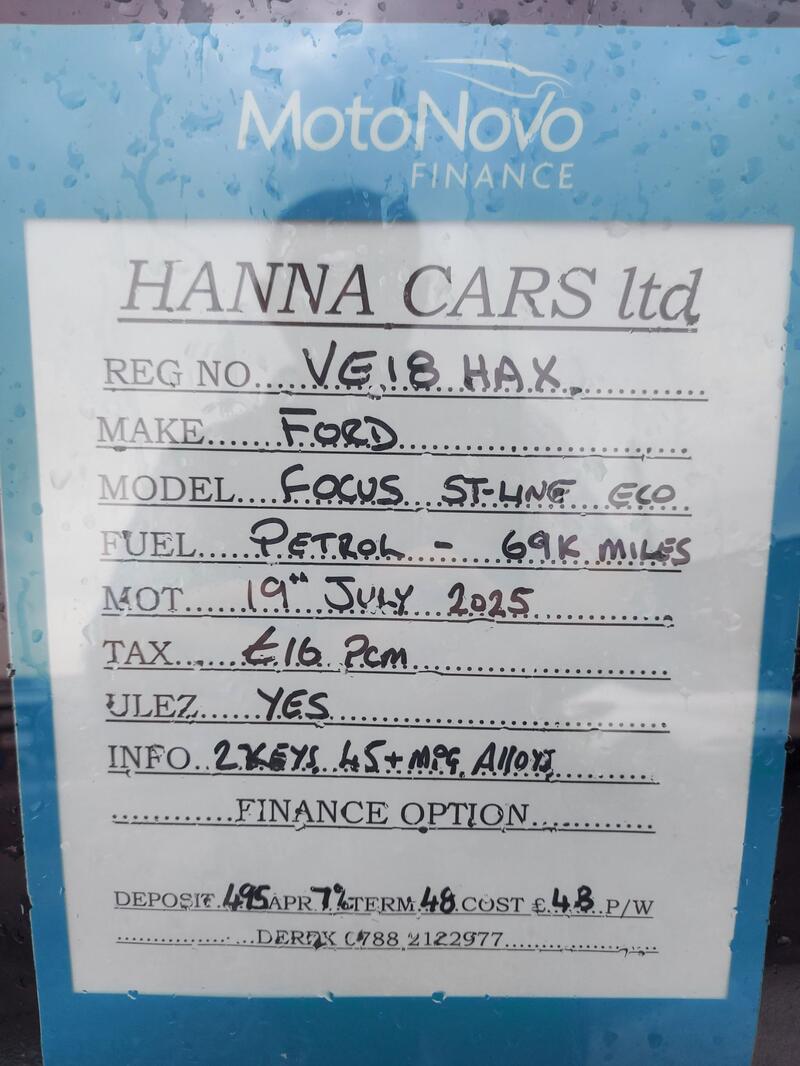 MotoNovo
FINANCE
HANNA CARS ltd
REG NO....VE18 HAX..............
MAKE......FORD..............................
MODEL....FOCUS ST-LINE ECO
FUEL.....PETROL - 69K MILES
MOT.....19th JULY 2025..............
TAX.......£16 PCM..........................
ULEZ.....YES...................................
INFO..2 KEYS. 45+ MPG. Alloys..........
............FINANCE OPTION............
DEPOSIT.495 APR.7% TERM.48.COST £.48..P/W
...................DEREK 0788 2122977...................